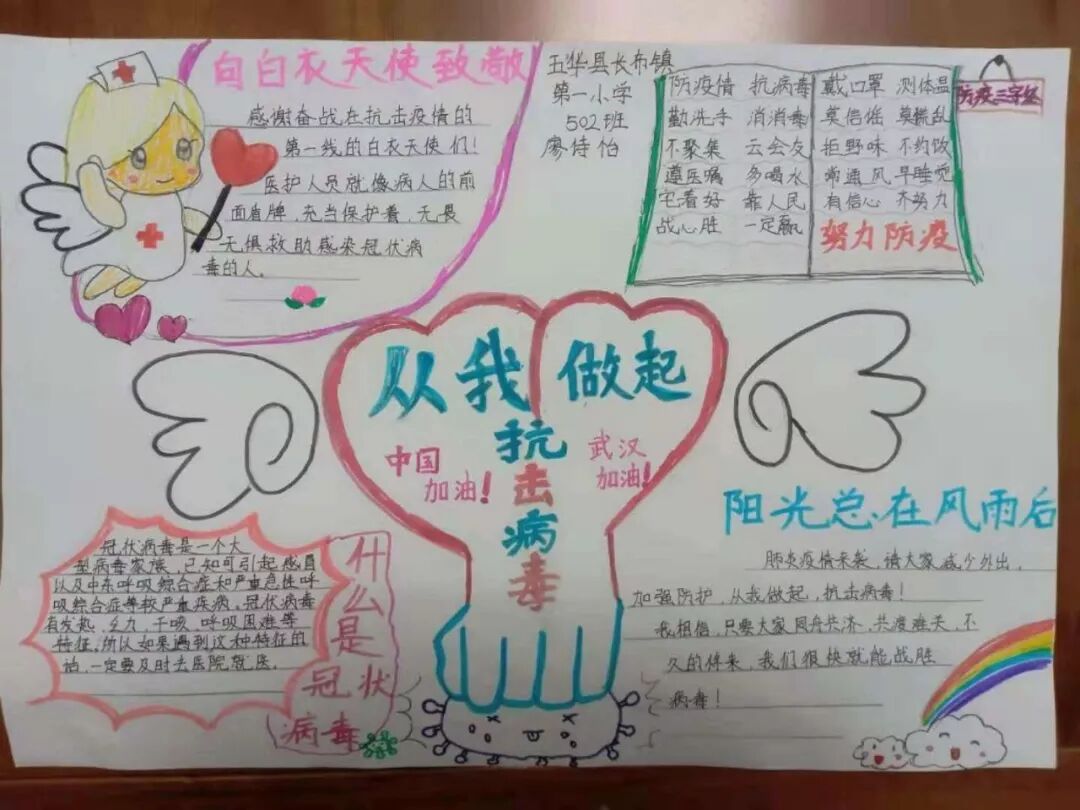 向白衣天使致敬
感谢奋战在抗击疫情的
第一线的白衣天使们！
医护人员就像病人的前
面盾牌，充当保护着，无畏
无惧救助感染冠伏病
毒的人。
五华县长布镇
第一小学
502班
廖诗怡
防疫三字经
防疫情 抗病毒
勤洗手 消消毒
不聚集 云会友
遵医嘱 多喝水
宅着好 靠人民
战必胜 一定赢
戴口罩 测体温
莫信谣 莫慌乱
拒野味 不约饭
常通风 早睡觉
有信心 齐努力
努力防疫
从我做起
抗击病毒
中国
加油！
武汉
加油！
什么是冠状
病毒
冠伏病毒是一个大
型病毒家族，已知可引起感冒
以及中东呼吸综合症和严重急性呼
吸综合症等较严重疾病。冠伏病毒
有发热、乏力、干咳、呼吸困难等
特征，所以如果遇到这种特征的
话，一定要及时去医院就医。
阳光总在风雨后
肺炎疫情来袭，请大家减少外出，
加强防护，从我做起，抗击病毒！
我相信，只要大家同舟共济，共渡难关，不
久的将来，我们很快就能战胜
病毒！